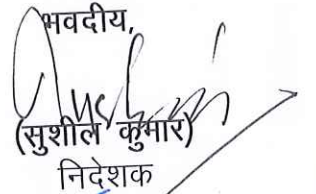 भवदीय,
(सुशील कुमार)
निदेशक